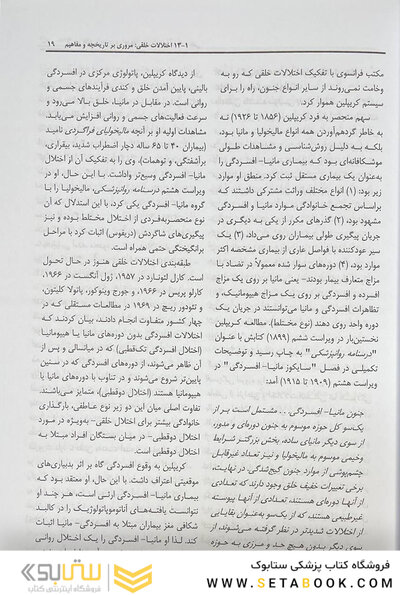 ۱-۱۳ اختلالات خلقی: مروری بر تاریخچه و مفاهیم ۱۹
مکتب فرانسوی با تفکیک اختلالات خلقی که رو به
وخامت نمی‌روند از سایر انواع جنون، راه را برای
سیستم کرپلین هموار کرد.
سهم منحصر به فرد کرپلین (۱۸۵۶ تا ۱۹۲۶) نه
به خاطر گردهم‌آوری همه انواع مانیا و مالیخولیا بود،
بلکه به دلیل روش‌شناسی و مشاهدات طولی
موشکافانه‌ای بود که بیماری مانیا- افسردگی را
به‌عنوان یک بیماری مستقل ثبت کرد. منطق او موارد
زیر بود: (۱) انواع مختلف وراثت مشترکی داشتند که
براساس تجمع خانوادگی موارد مانیا و افسردگی
مشهود بود، (۲) گذرهای مکرر از یکی به دیگری در
جریان پیگیری طولی بیماران روی می‌داد، (۳) یک
سیر عودکننده با فواصل عاری از بیماری مشخصه اکثر
موارد بود، (۴) دوره‌های سوار شده معمولاً در تضاد با
مزاج متعارف بیمار بودند- یعنی مانیا بر روی یک مزاج
افسرده و افسردگی بر روی یک مزاج هیپومانیک، و
تظاهرات افسردگی و مانیا می‌توانستند در جریان یک
دوره واحد روی دهند (نوع مختلط). مطالعه کرپلین
نخستین‌بار در ویراست ششم (۱۸۹۹) کتابش با عنوان
"درسنامه روانپزشکی" به چاپ رسید و توضیحات
تکمیلی در فصل "سایکوز مانیا- افسردگی" در
ویراست هشتم (۱۹۰۹ تا ۱۹۱۵) آمد:
جنون مانیا- افسردگی . . مشتمل است بر از
یک‌سو کل حوزه موسوم به جنون دوره‌ای و مدور،
از سوی دیگر مانیای ساده، بخش بزرگتر شرایط
وخیمی موسوم به مالیخولیا و نیز تعداد غیرقابل
چشم‌پوشی از موارد جنون گیج‌شدگی. در نهایت،
برخی تغییرات خفیف خلق وجود دارند که تعدادی
از آنها دوره‌ای هستند، تعدادی از آنها پیوسته
غیرطبیعی هستند، که از یک‌سو به‌عنوان بقایایی
از اختلالات شدیدتر در نظر گرفته می‌شوند، از
سوی دیگر بدون هیچ حد و مرزی به حوزه
از دیدگاه کرپلین، پاتولوژی مرکزی در افسردگی
بالینی، پایین آمدن خلق و کندی فرآیندهای جسمی و
روانی است. در مقابل در مانیا، خلق بالا می‌رود و
سرعت فعالیت‌های جسمی و روانی افزایش می‌یابد.
مشاهدات اولیه او بر آنچه مالیخولیای فراگردی نامید
(بیماران ۴۰ تا ۶۵ ساله دچار اضطراب شدید، بیقراری،
برآشفتگی، و توهمات)، وی را به تفکیک آن از اختلال
مانیا- افسردگی وسیع‌تر واداشت. با این حال، او در
ویراست هشتم درسنامه روانپزشکی، مالیخولیا را با
گروه مانیا- افسردگی یکی کرد، با این استدلال که آن
نوع منحصربه‌فردی از اختلال مختلط بوده و نیز
پیگیری‌های شاگردش (دریفوس) اثبات کرد با مراحل
برانگیختگی حتمی همراه است.
طبقه‌بندی اختلالات خلقی هنوز در حال تحول
است. کارل لئونارد در ۱۹۵۷، ژول آنگست در ۱۹۶۶،
کارلو پریس در ۱۹۶۶، و جورج وینوکور، پائولا کلیتون،
و تئودور ریچ در ۱۹۶۹ در مطالعات مستقلی که در
چهار کشور متفاوت انجام دادند، بیان کردند که
اختلالات افسردگی بدون دوره‌های مانیا یا هیپومانیا
(اختلال افسردگی تک‌قطبی) که در میانسالی و پس از
آن ظاهر می‌شوند، از اختلالات دوره‌ای که در سنین
پایین‌تر شروع می‌شوند و در تناوب با دوره‌های مانیا یا
هیپومانیا هستند (اختلال دوقطبی)، متمایز می‌باشند.
تفاوت اصلی میان این دو زیر نوع عاطفی، بارگذاری
خانوادگی بیشتر برای اختلال خلقی- به‌ویژه در مورد
اختلال دوقطبی- در میان بستگان افراد مبتلا به
اختلال دوقطبی است.
کرپلین به وقوع افسردگی گاه بر اثر بدبیاری‌های
موقعیتی اعتراف داشت. با این حال، او معتقد بود که
بیماری مانیا- افسردگی ارثی است، هر چند او
نتوانست یافته‌های آناتوموپاتولوژیک را در کالبد
شکافی مغز بیماران مبتلا به مانیا- افسردگی اثبات
کند. لذا او مانیا- افسردگی را
ستابوک
فروشگاه اینترنتی کتاب
فروشگاه کتاب پزشکی ستابوک
WWW.SETABOOK.COM